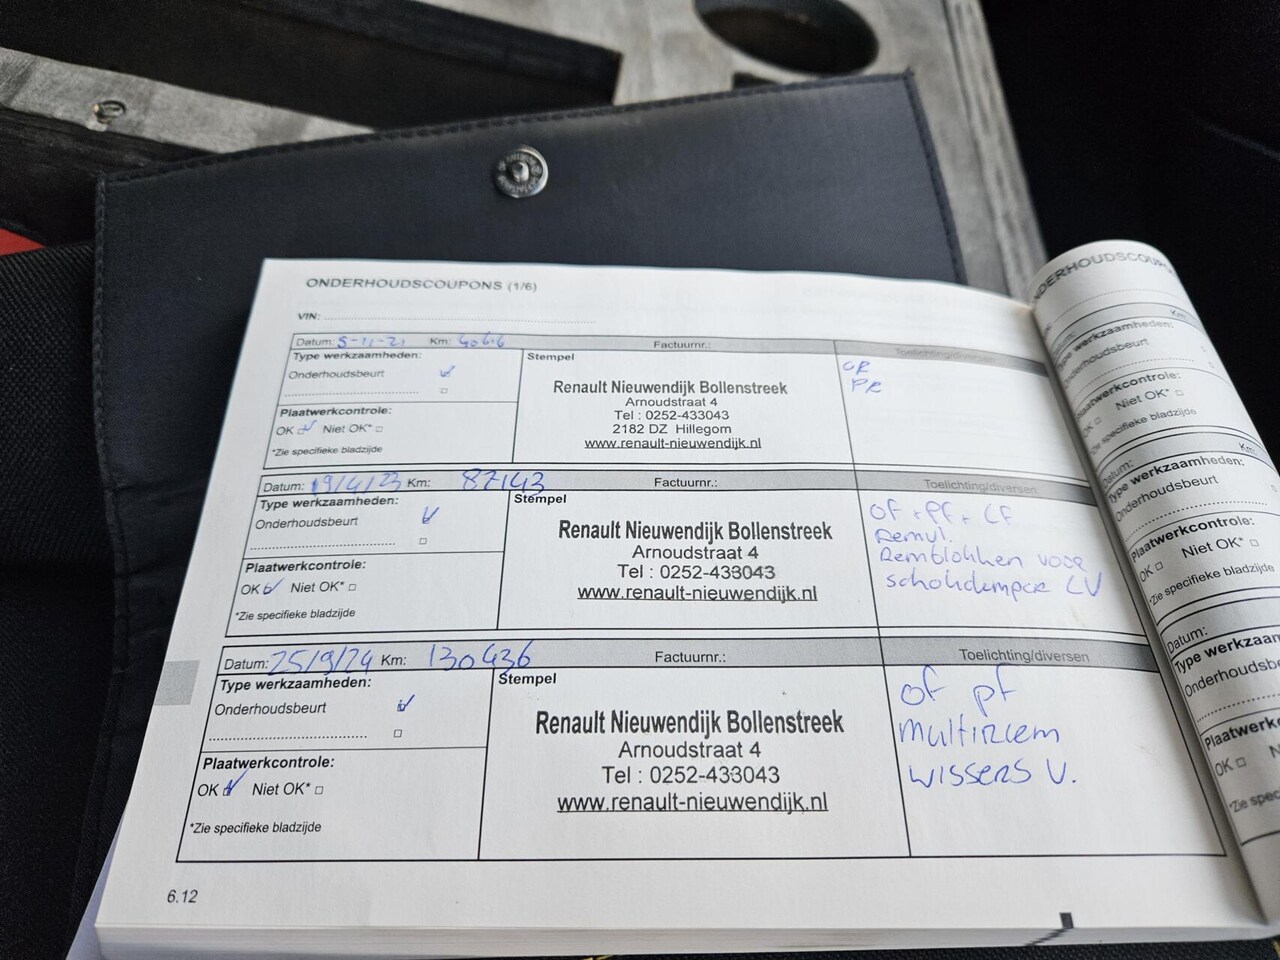 ONDERHOUDSCOUPONS (1/6)
VIN:
Datum: 5-11-21 Km: Factuurnr.: Toelichting/diversen
Type werkzaamheden:
Onderhoudsbeurt
Plaatwerkcontrole:
OK Niet OK*
*Zie specifieke bladzijde
Stempel
Renault Nieuwendijk Bollenstreek
Arnoudstraat 4
Tel : 0252-433043
2182 DZ Hillegom
www.renault-nieuwendijk.nl
Datum: 19/4/23 Km: 87143 Factuurnr.: Toelichting/diversen
Type werkzaamheden:
Onderhoudsbeurt
Plaatwerkcontrole:
OK Niet OK*
*Zie specifieke bladzijde
Stempel
Renault Nieuwendijk Bollenstreek
Arnoudstraat 4
Tel : 0252-433043
www.renault-nieuwendijk.nl
Of + Pf + Lf
Remvl.
Remblokken voor
schokdemper LV
Datum: 25/9/24 Km: 130436 Factuurnr.: Toelichting/diversen
Type werkzaamheden:
Onderhoudsbeurt
Plaatwerkcontrole:
OK Niet OK*
*Zie specifieke bladzijde
Stempel
Renault Nieuwendijk Bollenstreek
Arnoudstraat 4
Tel : 0252-433043
www.renault-nieuwendijk.nl
of pf
multiriem
wissers V.
6.12
Km:
Type werkzaamheden:
Onderhoudsbeurt
Plaatwerkcontrole:
OK Niet OK*
*Zie specifieke bladzijde
Datum: Km:
Type werkzaamheden:
Onderhoudsbeurt
Plaatwerkcontrole:
OK Niet OK*
*Zie specifieke bladzijde
Datum:
Type werkzaamheden:
Plaatwerkcontrole:
OK